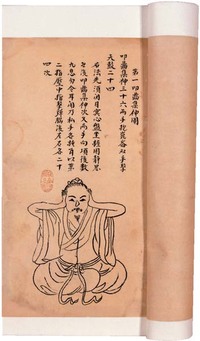 第一叩齒集神圖
叩齒集神三十六兩手抱崑崙双手擊
天鼓二十四
右法先須閉目冥心盤坐握固静思
後叩齒集神次叉兩手向項後數
九息勿令耳聞乃移手各掩耳以第
二指壓中指擊彈腦後左右各二十
四次